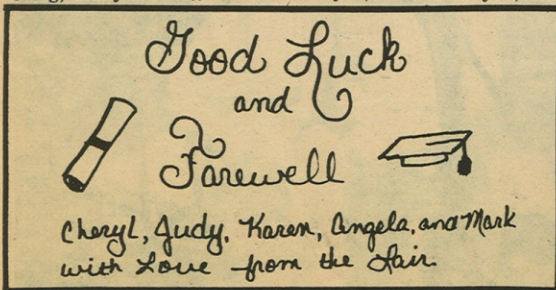 Good Luck
and
Farewell
Cheryl, Judy, Karen, Angela, and Mark
with Love from the Lair.